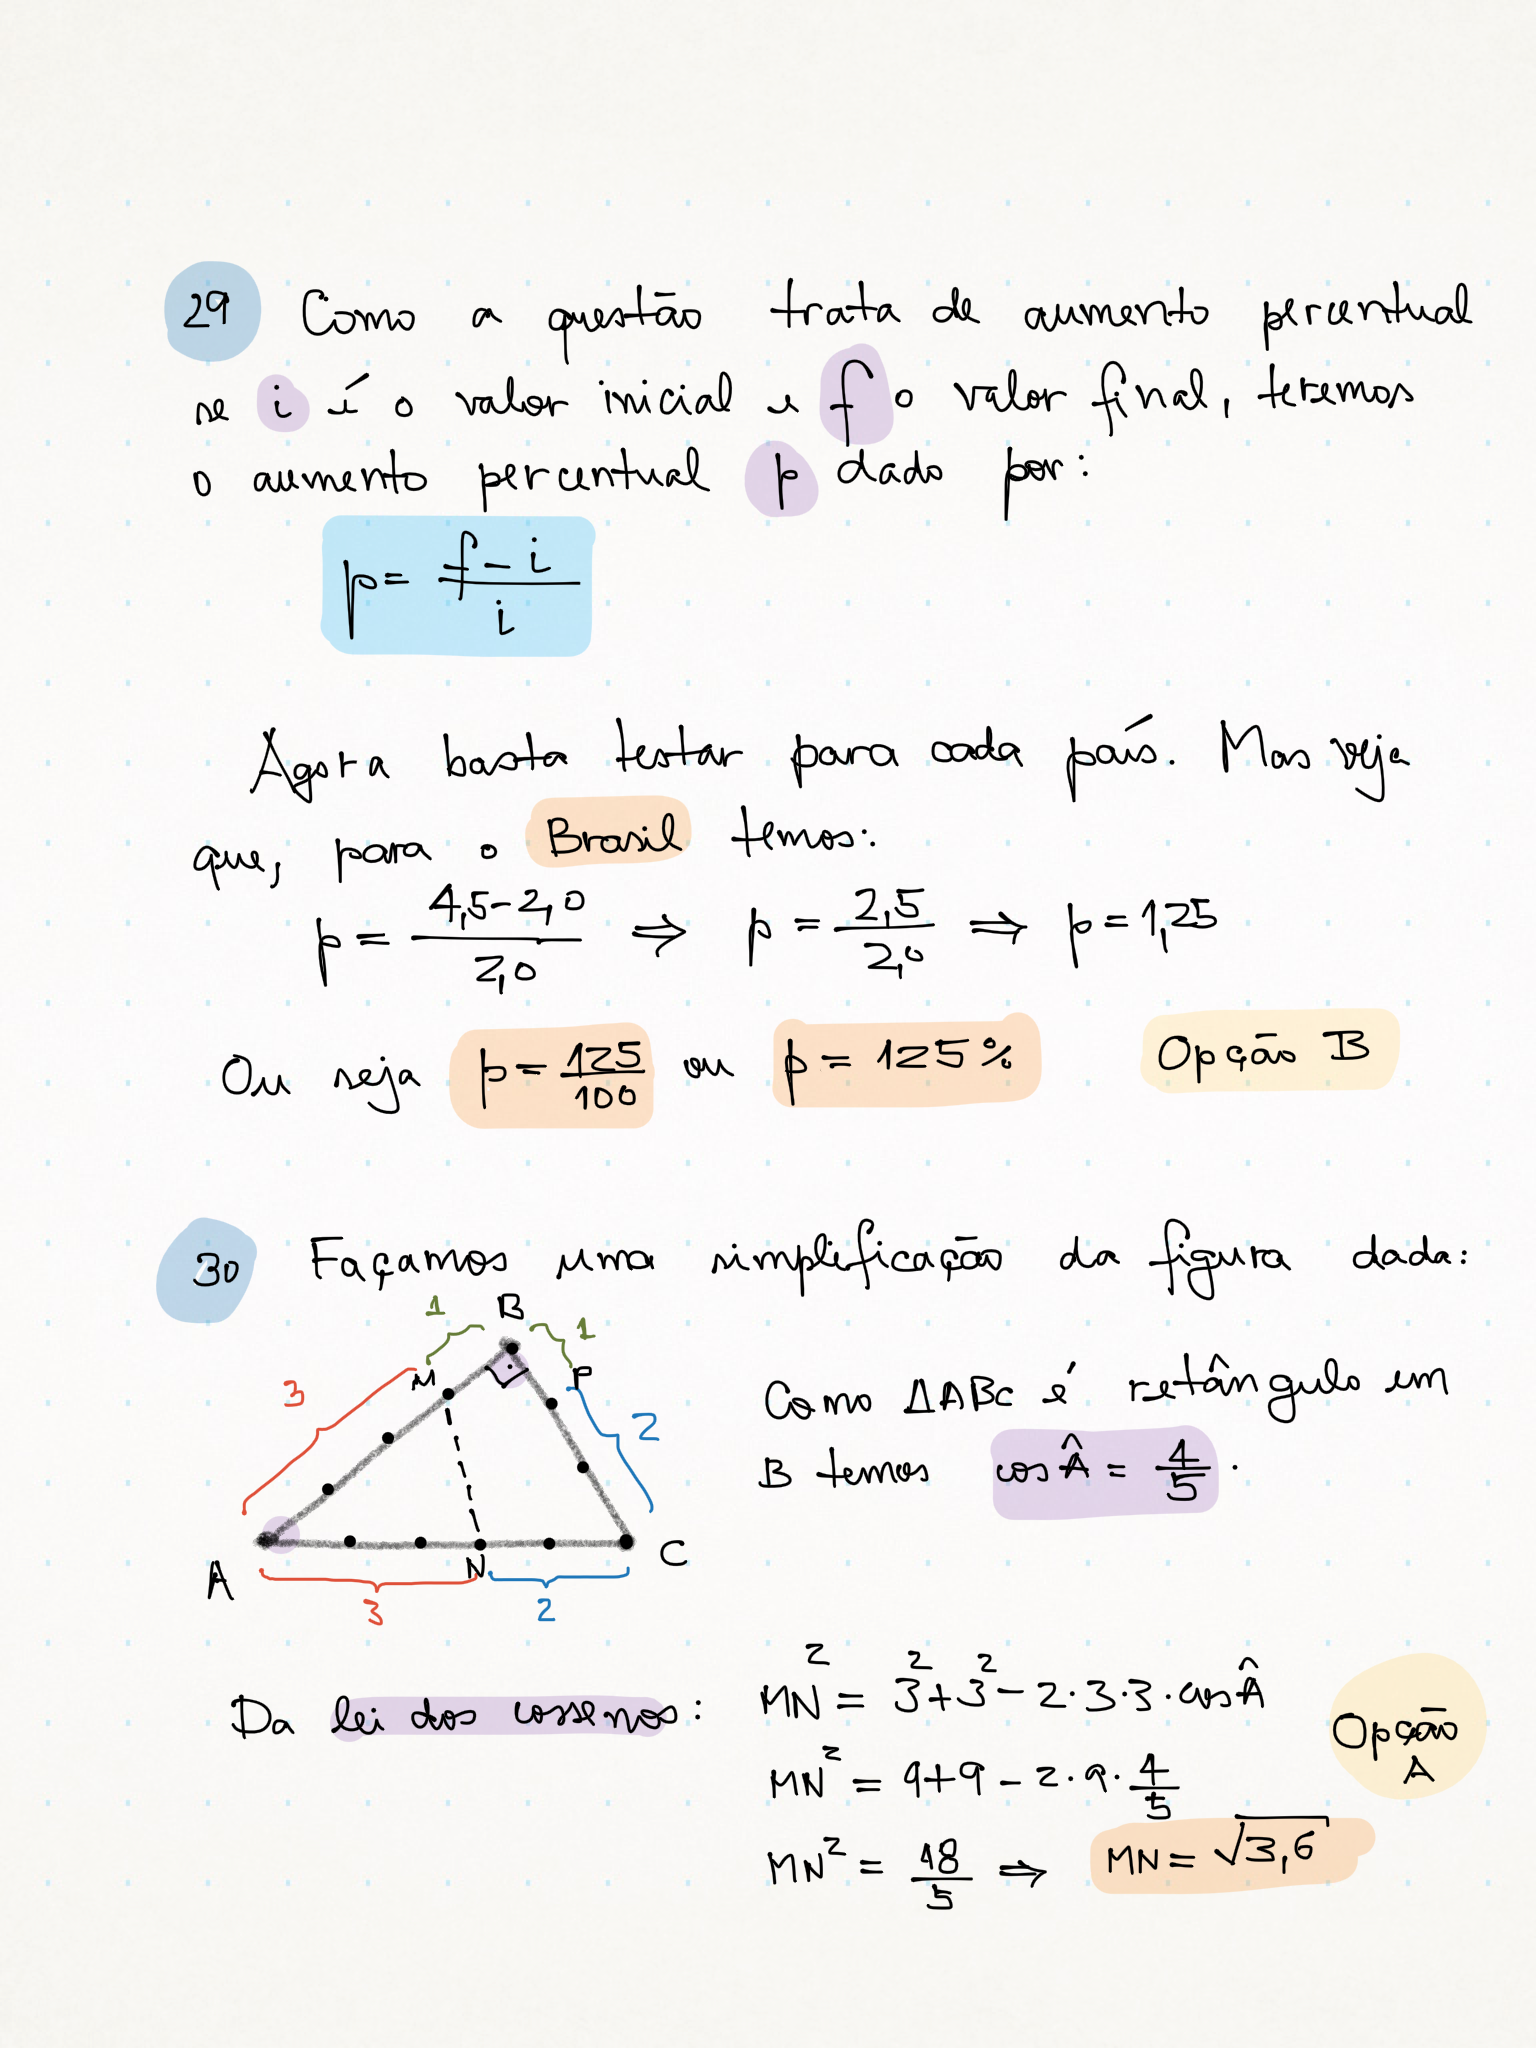 29 Como a questão trata de aumento percentual
se i é o valor inicial e f o valor final, teremos
o aumento percentual p dado por:
p = f - i / i
Agora basta testar para cada país. Mas veja
que, para o Brasil temos:
p = 4,5-2,0 / 2,0 ⇒ p = 2,5 / 2,0 ⇒ p = 1,25
Ou seja p = 125/100 ou p = 125% Opção B
30 Façamos uma simplificação da figura dada:
1 B 1
3 M P 2
A N C
3 2
Como ΔABC é retângulo em
B temos cos Â = 4/5 .
Da lei dos cossenos: MN² = 3² + 3² - 2·3·3·cos Â
MN² = 9+9 - 2·9· 4/5
MN² = 18/5 ⇒ MN = √3,6
Opção
A